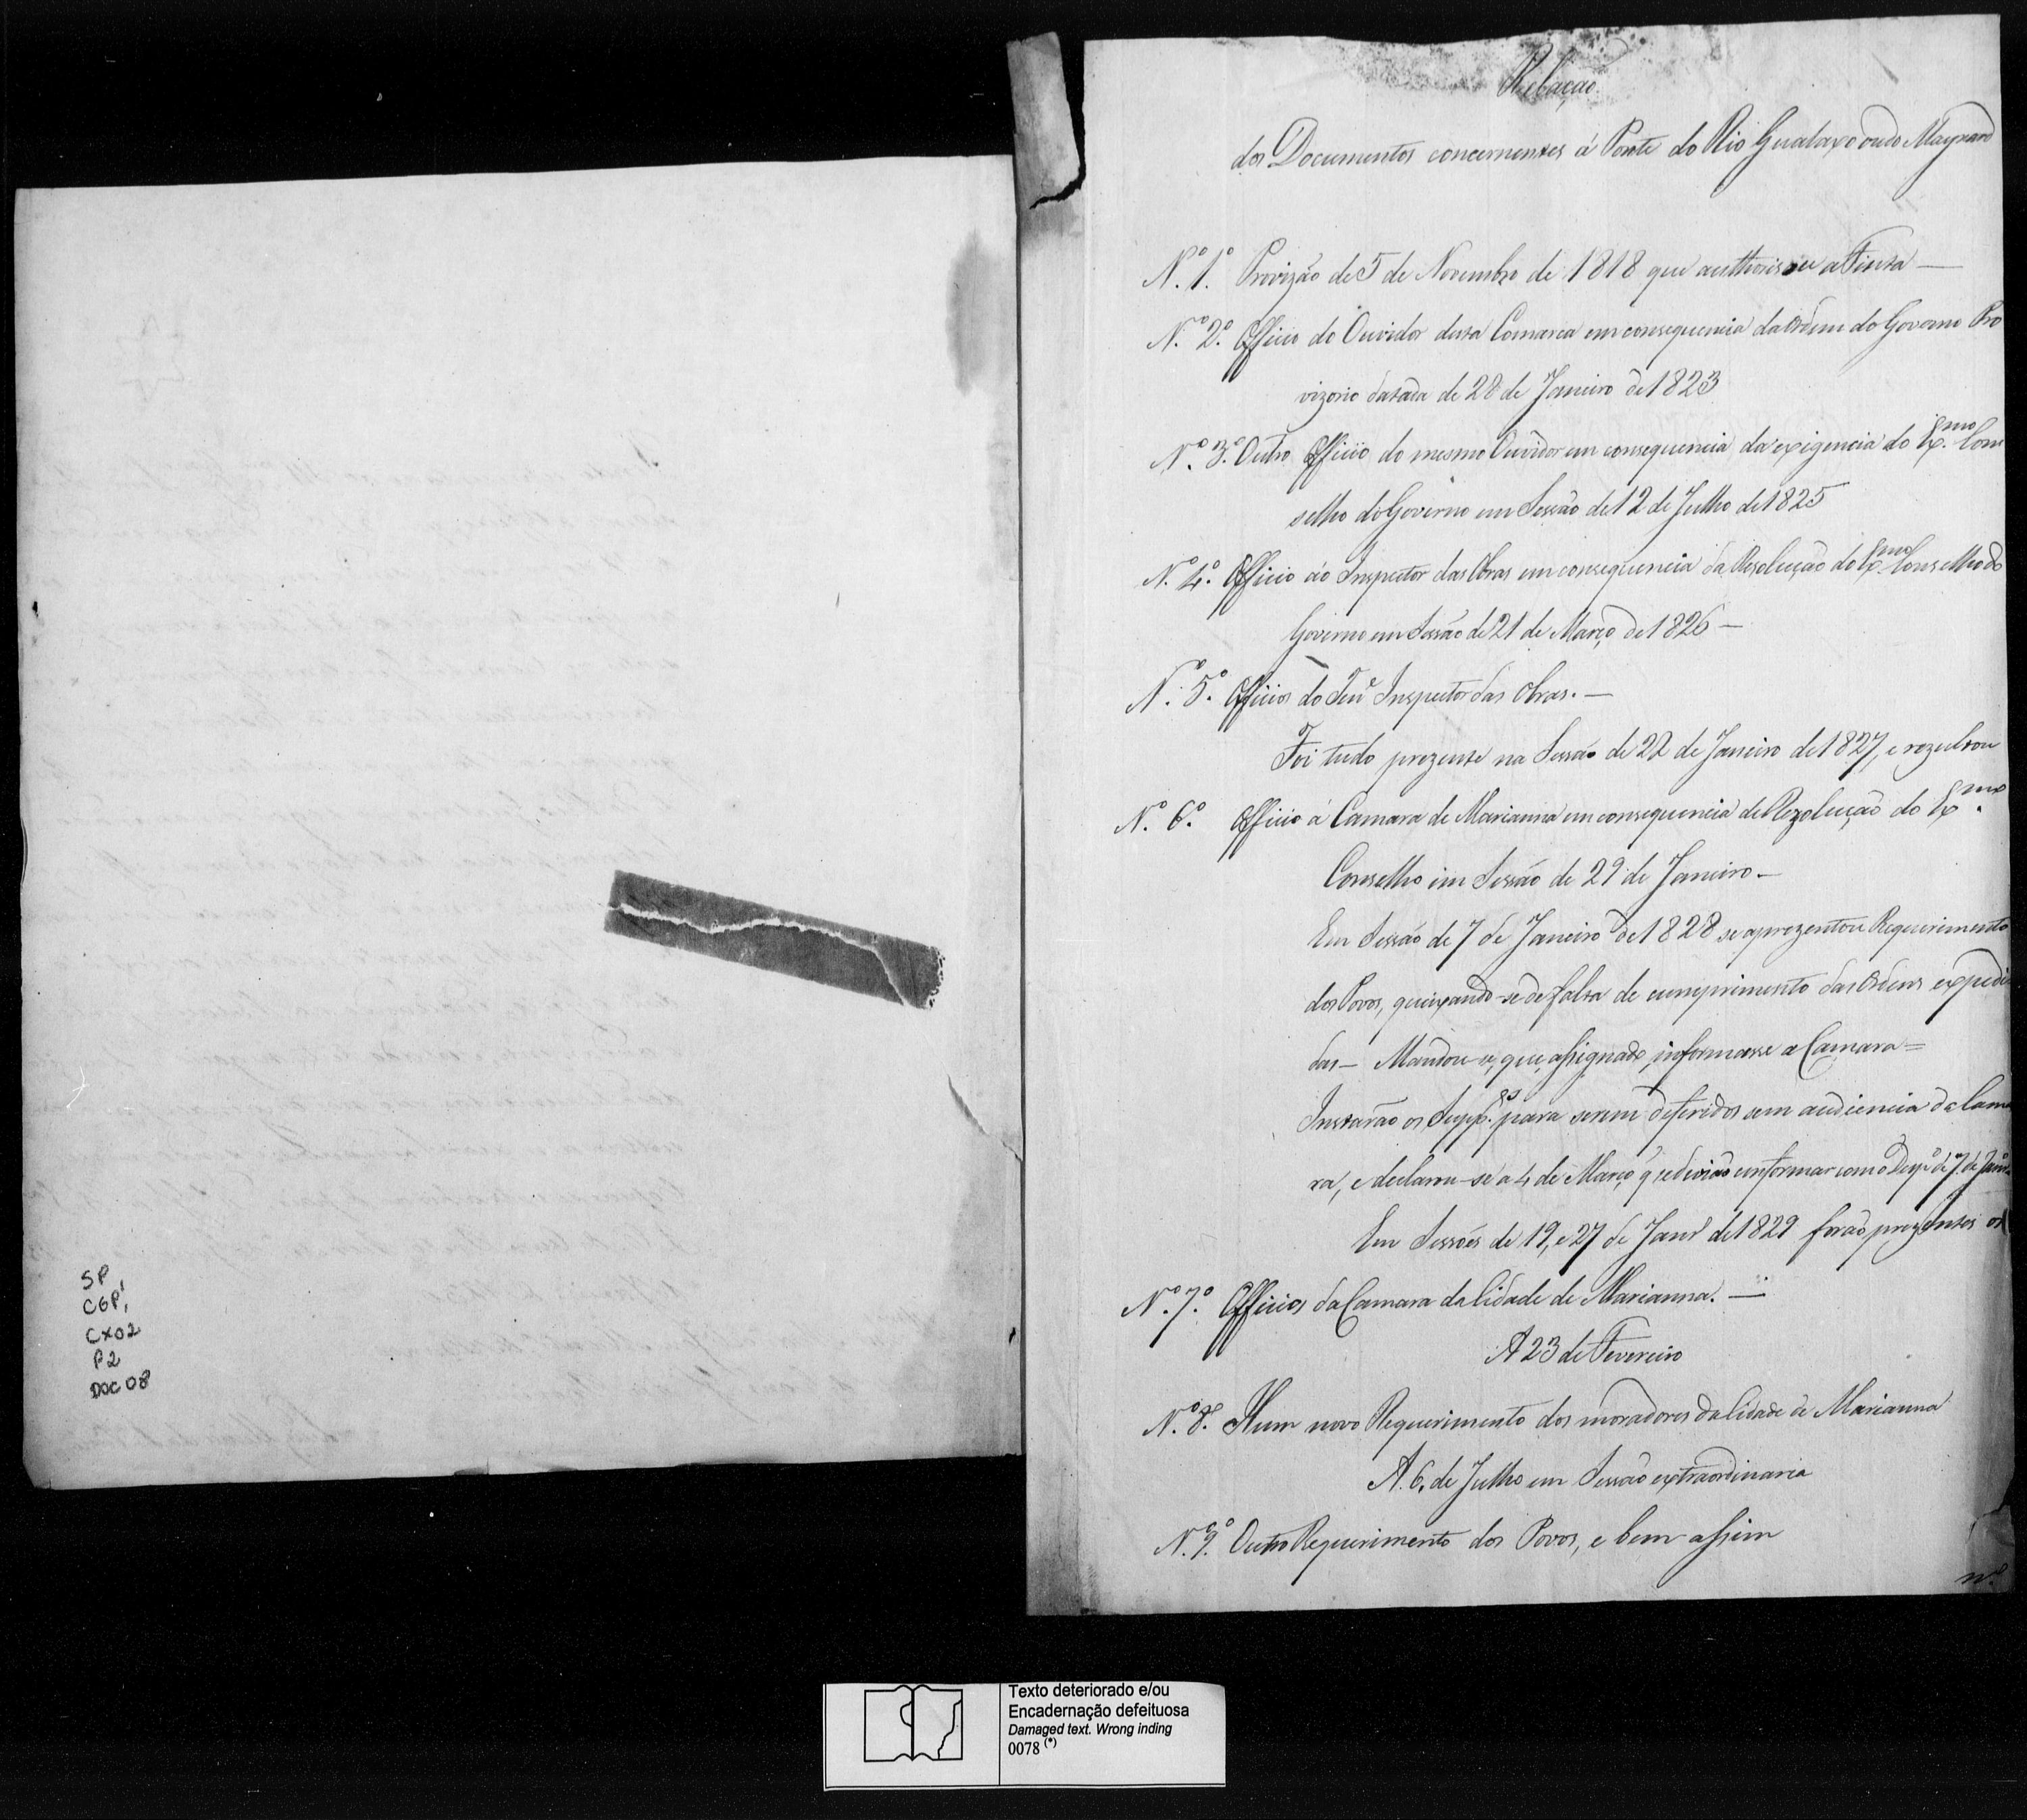 SP
CGP1
CX02
P2
DOC 08
Relação
dos Documentos concernentes á Ponte do Rio Gualaxo ou do Maynard
N.º 1.º Provizão de 5 de Novembro de 1818 que authorisou a Finta —
N.º 2.º Officio do Ouvidor desta Comarca em consequencia da Ordem do Governo Pro
vizorio datada de 28 de Janeiro de 1823
N.º 3.º Outro Officio do mesmo Ouvidor em consequencia da exigencia do Ex.mo Con
selho do Governo em Sessão de 12 de Julho de 1825
N.º 4.º Officio ao Inspector das Obras em consequencia da Resolução do Ex.mo Conselho do
Governo em Sessão de 21 de Março de 1826 —
N.º 5.º Officios do Ten.e Inspector das Obras. —
Foi tudo prezente na Sessão de 22 de Janeiro de 1827, e rezultou
N.º 6.º Officio á Camara de Marianna em consequencia de Rezolução do Ex.mo
Conselho em Sessão de 29 de Janeiro —
Em Sessão de 7 de Janeiro de 1828 se aprezentou Requerimento
dos Povos, queixando-se de falta de cumprimento das Ordens expedi
das — Mandou-se, que, assignado, informasse a Camara =
Instarão os Supp.es para serem deferidos sem audiencia da Cama
ra, e declarou-se a 4 de Março q' se devião conformar com o Desp.o de 7 de Janr.o
Em Sessões de 19, e 27 de Janr.o de 1829 forão prezentes os
N.º 7.º Officios da Camara da Cidade de Marianna. —
A 23 de Fevereiro
N.º 8.º Hum novo Requerimento dos moradores da Cidade de Marianna
A 6 de Julho em Sessão extraordinaria
N.º 9.º Outro Requerimento dos Povos, e bem assim
n.º
Texto deteriorado e/ou
Encadernação defeituosa
Damaged text. Wrong inding
0078 (*)